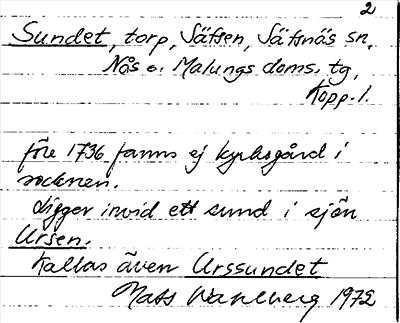 2
Sundet, torp, Säfsen, Säfsnäs sn,
Nås o. Malungs doms. tg,
Kopp. l.
före 1736 fanns ej kyrkogård i
socknen.
Ligger invid ett sund i sjön
Ursen.
Kallas även Urssundet
Mats Wahlberg 1972